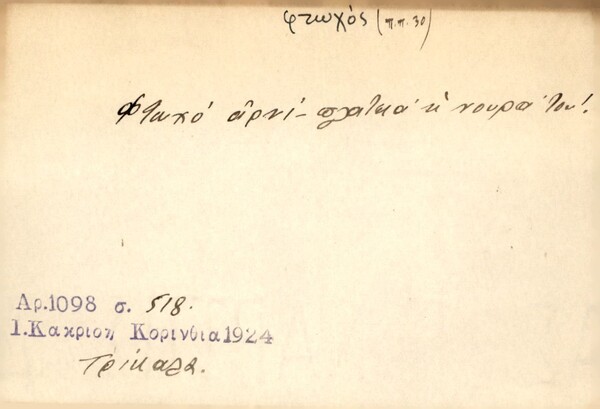 φτωχός (π.π. 30)
Φτωχό ἀρνί - πλατειά ἡ νουρά του!
Αρ.1098 σ. 518.
Ι.Κακριδη Κορινθια 1924
Τρίκαλα.